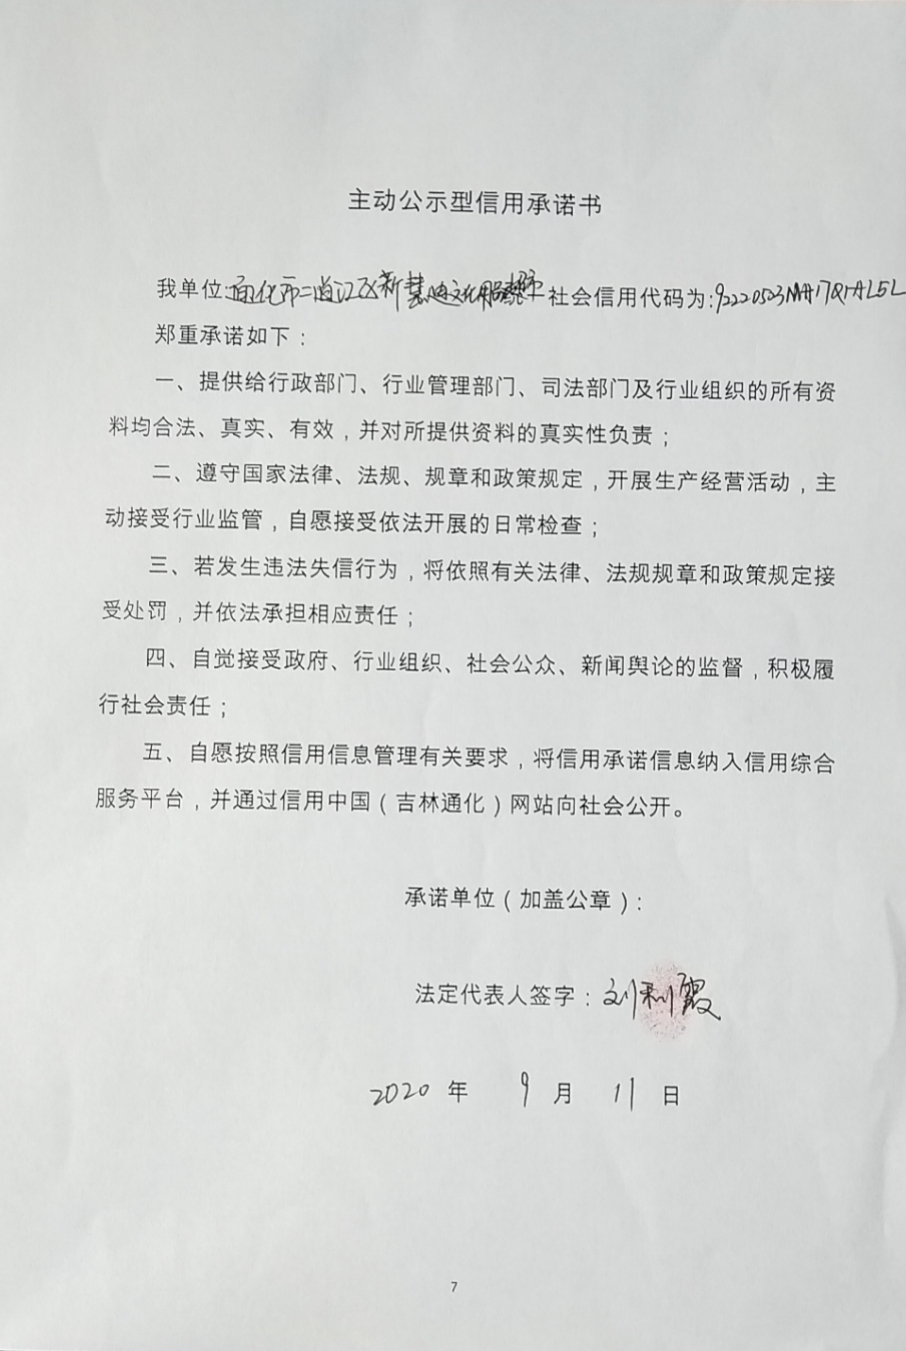 主动公示型信用承诺书
我单位:通化市二道江区新慧迪文化服 社会信用代码为:92220523MA17Q1AL5L
郑重承诺如下：
一、提供给行政部门、行业管理部门、司法部门及行业组织的所有资
料均合法、真实、有效，并对所提供资料的真实性负责；
二、遵守国家法律、法规、规章和政策规定，开展生产经营活动，主
动接受行业监管，自愿接受依法开展的日常检查；
三、若发生违法失信行为，将依照有关法律、法规规章和政策规定接
受处罚，并依法承担相应责任；
四、自觉接受政府、行业组织、社会公众、新闻舆论的监督，积极履
行社会责任；
五、自愿按照信用信息管理有关要求，将信用承诺信息纳入信用综合
服务平台，并通过信用中国（吉林通化）网站向社会公开。
承诺单位（加盖公章）：
法定代表人签字：刘利霞
2020 年 9 月 11 日
7